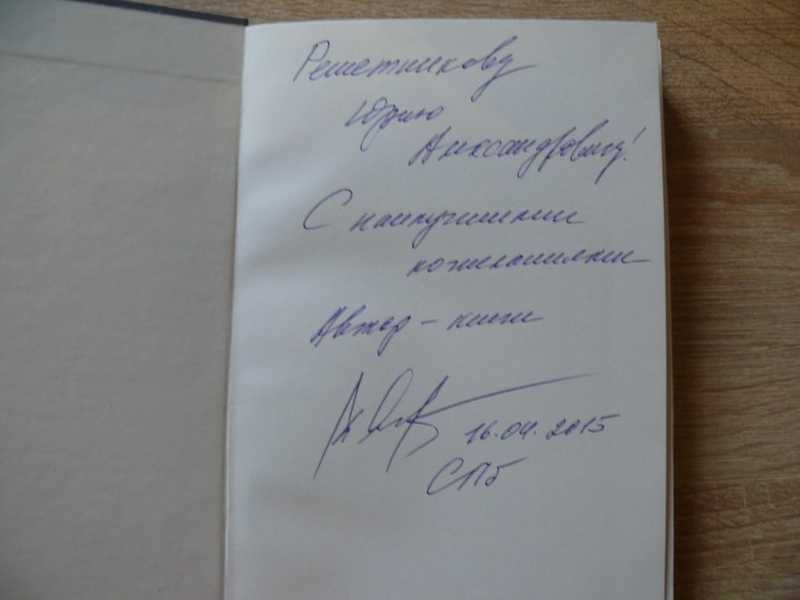 Решетникову
Юрию
Александровичу!
С наилучшими
пожеланиями
Автор - книги
16.04.2015
СПб